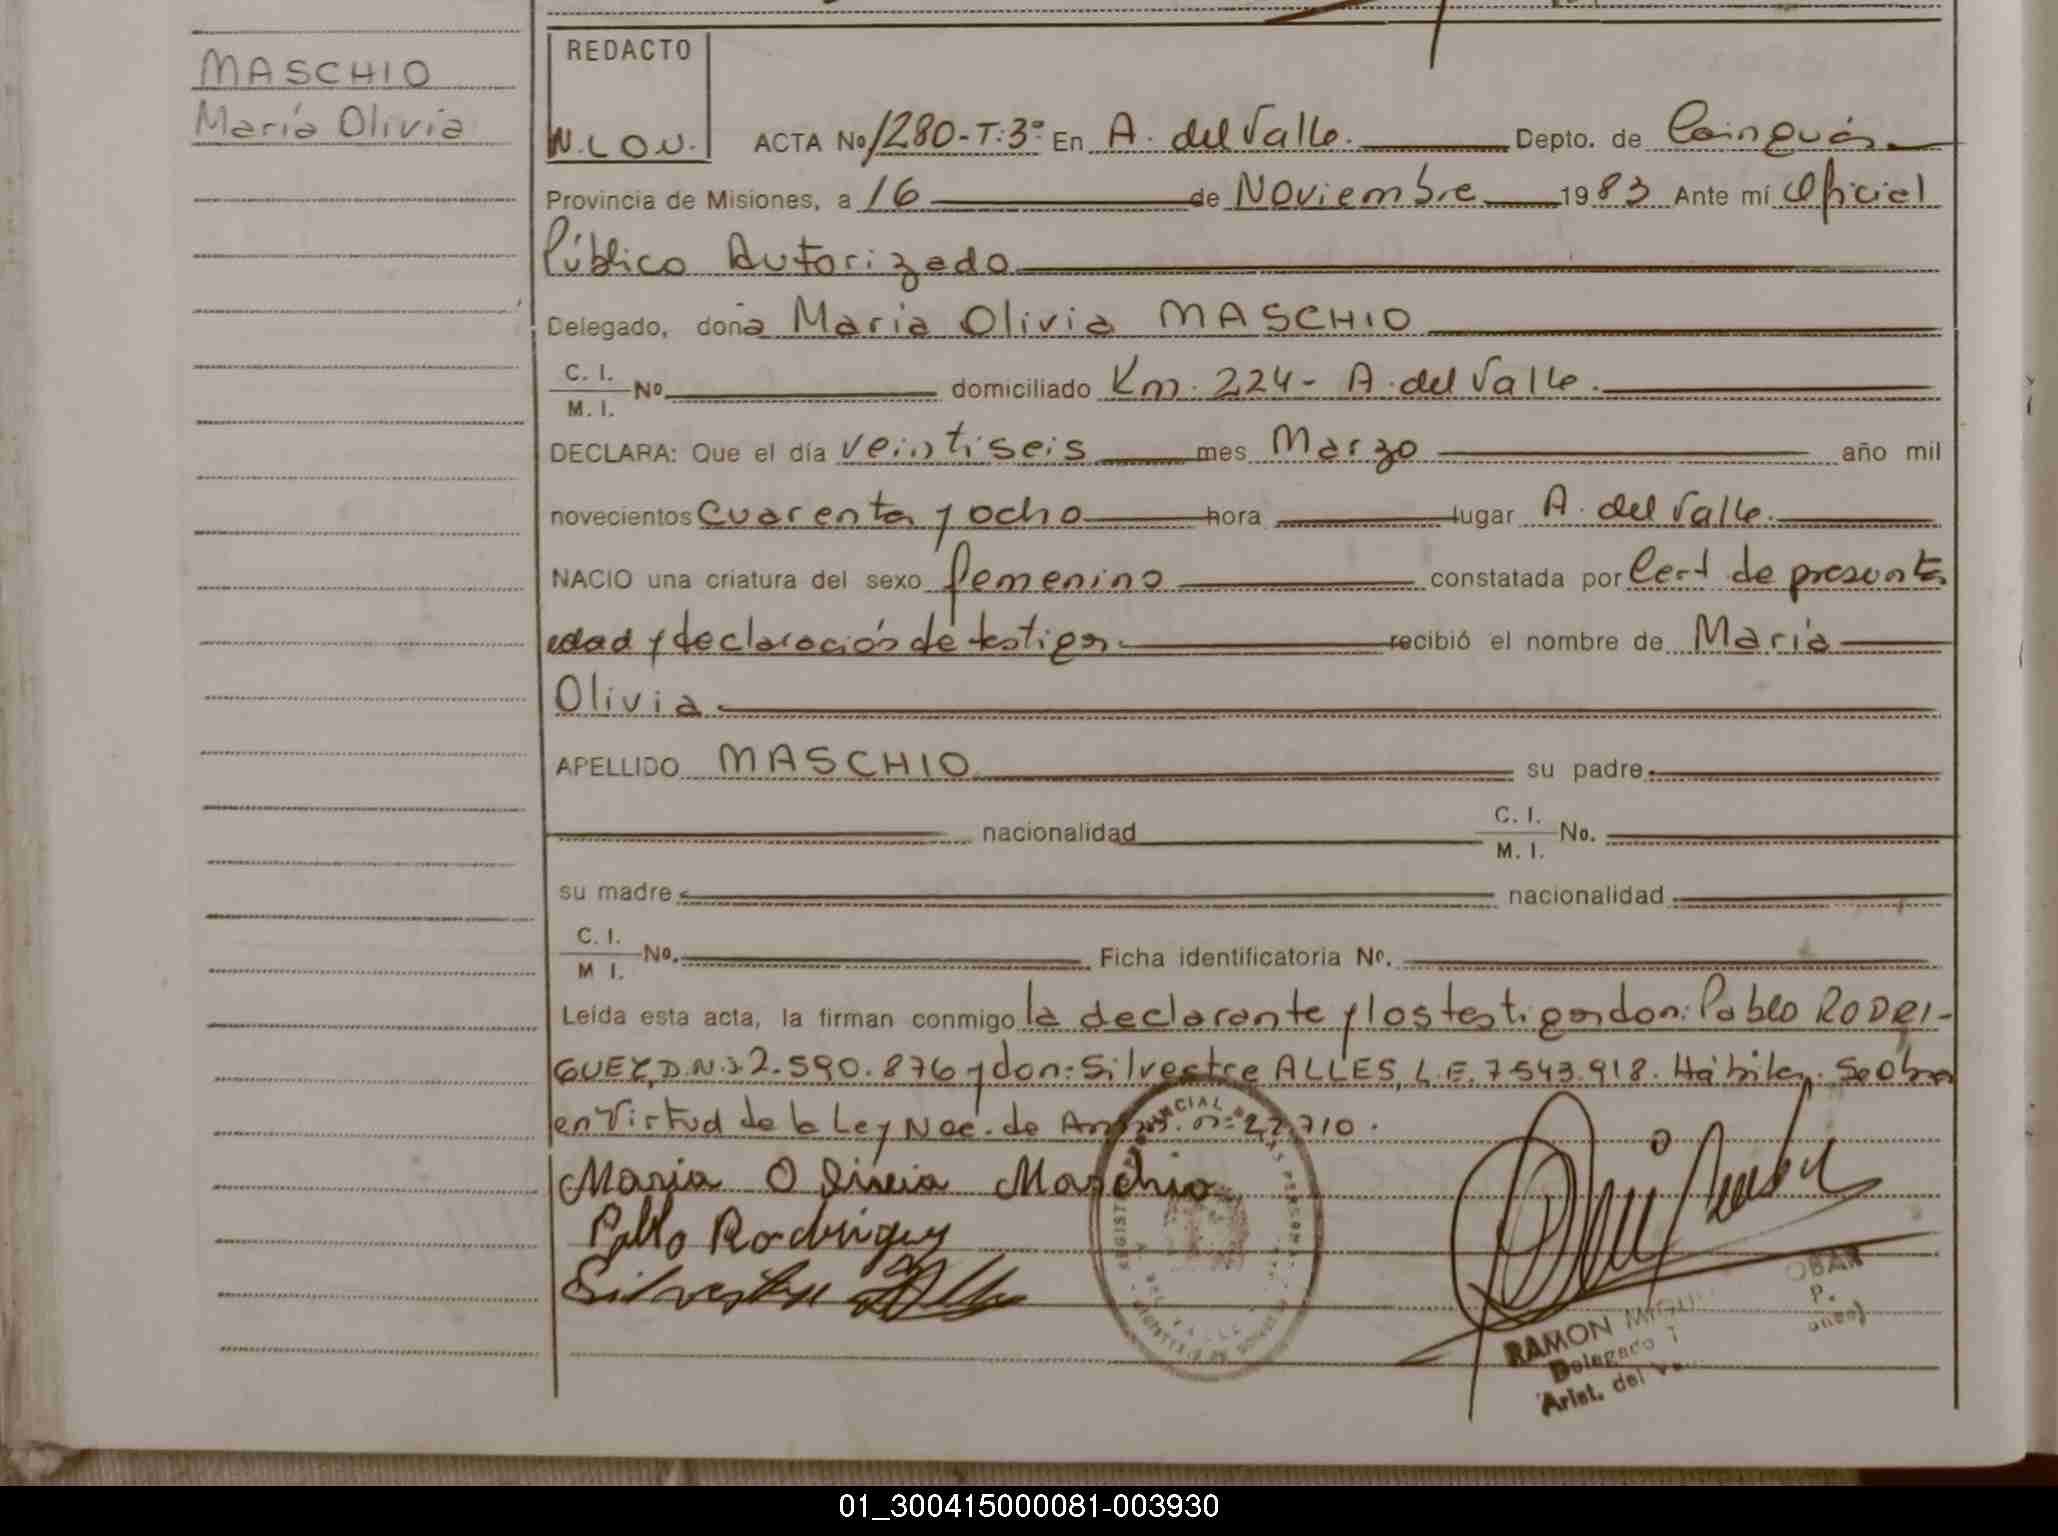 MASCHIO
María Olivia
REDACTO
N.L.O.V.
ACTA No 1280-T:3º En A. del Valle. Depto. de Cainguás
Provincia de Misiones, a 16 de Noviembre 1983 Ante mí Oficial
Público Autorizado
Delegado, dona Maria Olivia MASCHIO
C. I.
M. I. No domiciliado Km. 224- A. del Valle.
DECLARA: Que el día veintiseis mes Marzo año mil
novecientos cuarenta y ocho hora lugar A. del Valle.
NACIO una criatura del sexo femenino constatada por Cert de presunta
edad y declaración de testigos. recibió el nombre de María
Olivia
APELLIDO MASCHIO su padre
nacionalidad C. I.
M. I. No.
su madre nacionalidad
C. I.
M I. No. Ficha identificatoria No.
Leída esta acta, la firman conmigo la declarante y los testigos don: Pablo RODRI-
GUEZ, D.N.I 2.590.876 y don: Silvestre ALLES, L.E. 7543.918. Hábiles. Se obra
en Virtud de la Ley Nac. de nº 22.710.
Maria Olivia Maschio
Pablo Rodriguez
Silvestre Alles
VALLE
RAMON
Delegado
Arist. del
01_300415000081-003930